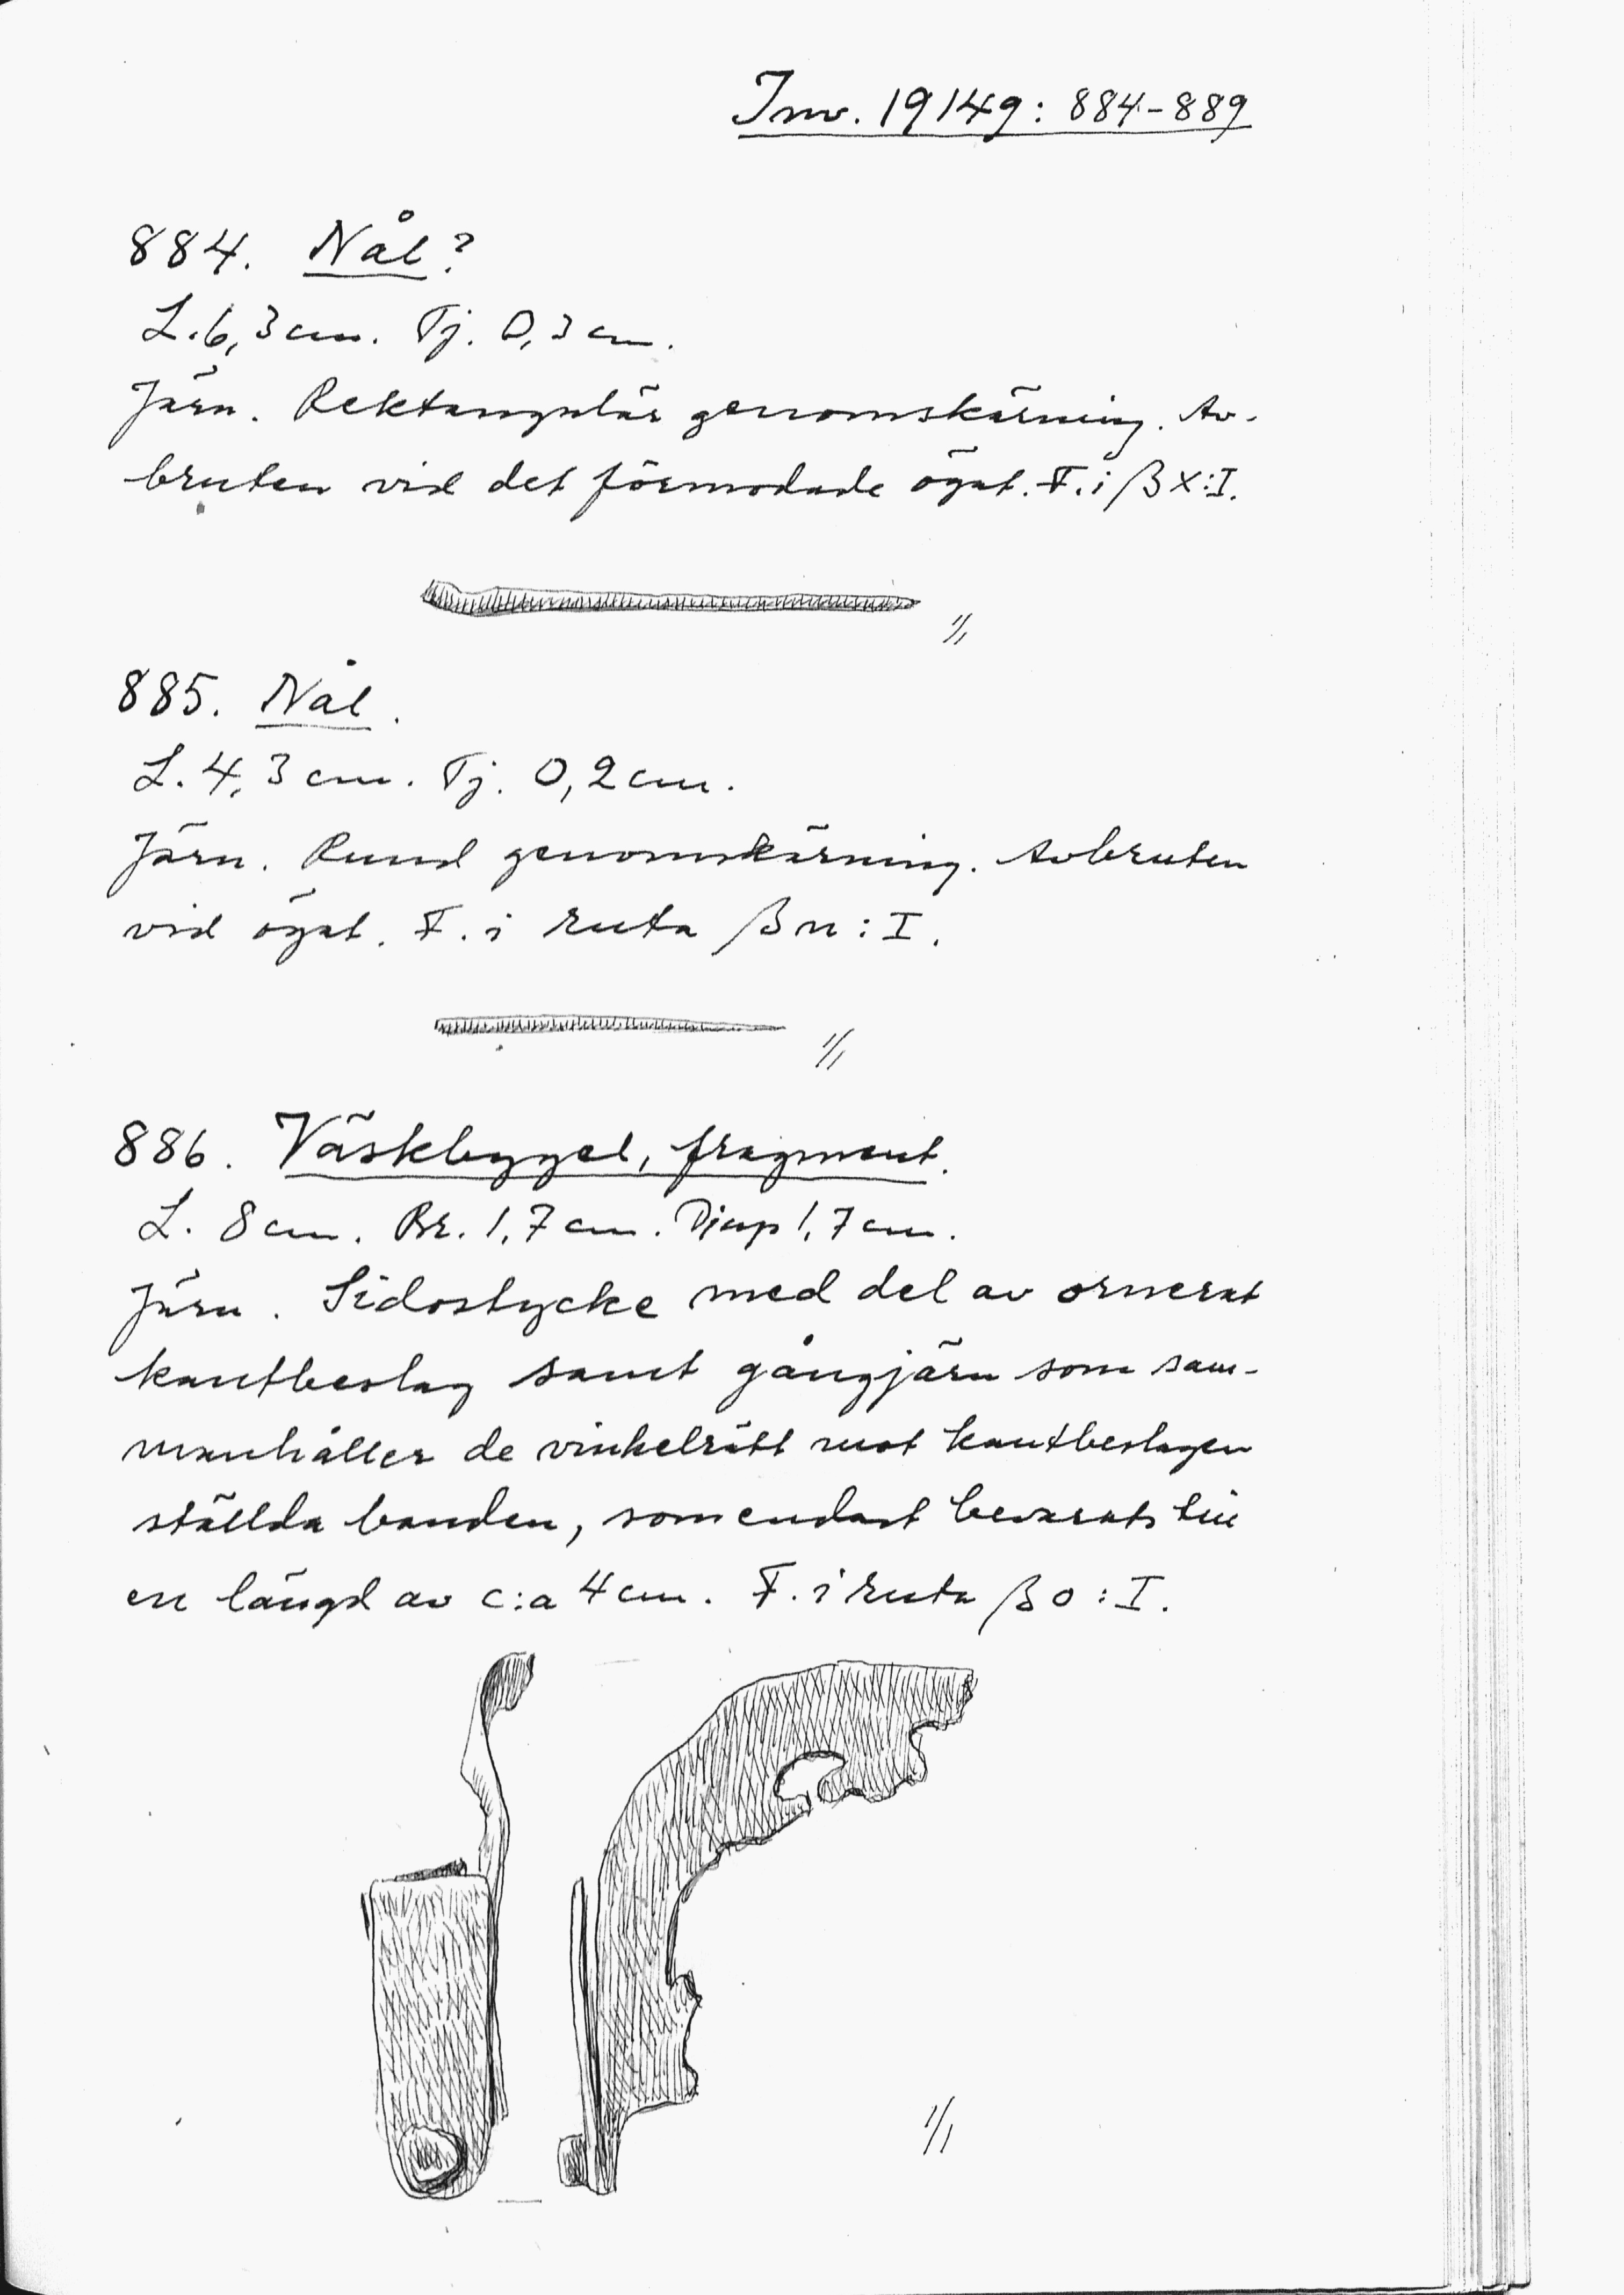 Inv. 19149: 884-889
884. Nål?
L. 6,3 cm. Tj. 0,3 cm.
Järn. Rektangulär genomskärning. Av-
bruten vid det förmodade ögat. F. i β x:I.
1/1
885. Nål.
L. 4,3 cm. Tj. 0,2 cm.
Järn. Rund genomskärning. Avbruten
vid ögat. F. i ruta β n:I.
1/1
886. Väskbygel, fragment.
L. 8 cm. Br. 1,7 cm. Djup 1,7 cm.
Järn. Sidostycke med del av ornerat
kantbeslag samt gångjärn som sam-
manhåller de vinkelrätt mot kantbeslagen
ställda banden, som endast bevarats till
en längd av c:a 4 cm. F. i ruta β o:I.
1/1